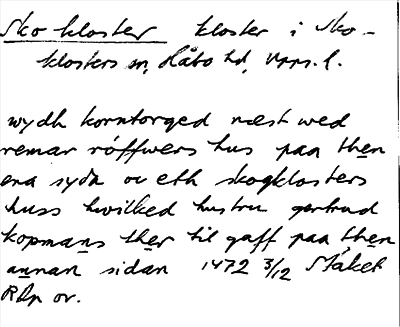 Sko kloster kloster i Sko-
klosters sn, Håbo hd, Upps. l.
wydh korntorged næst wed
remar röffwers hus paa then
ena sydh oc eth skogklosters
huss hwilked hustru gertrud
kopmans ther til gaff paa then
annan sidan 1472 3/12 Stäket
RAp or.